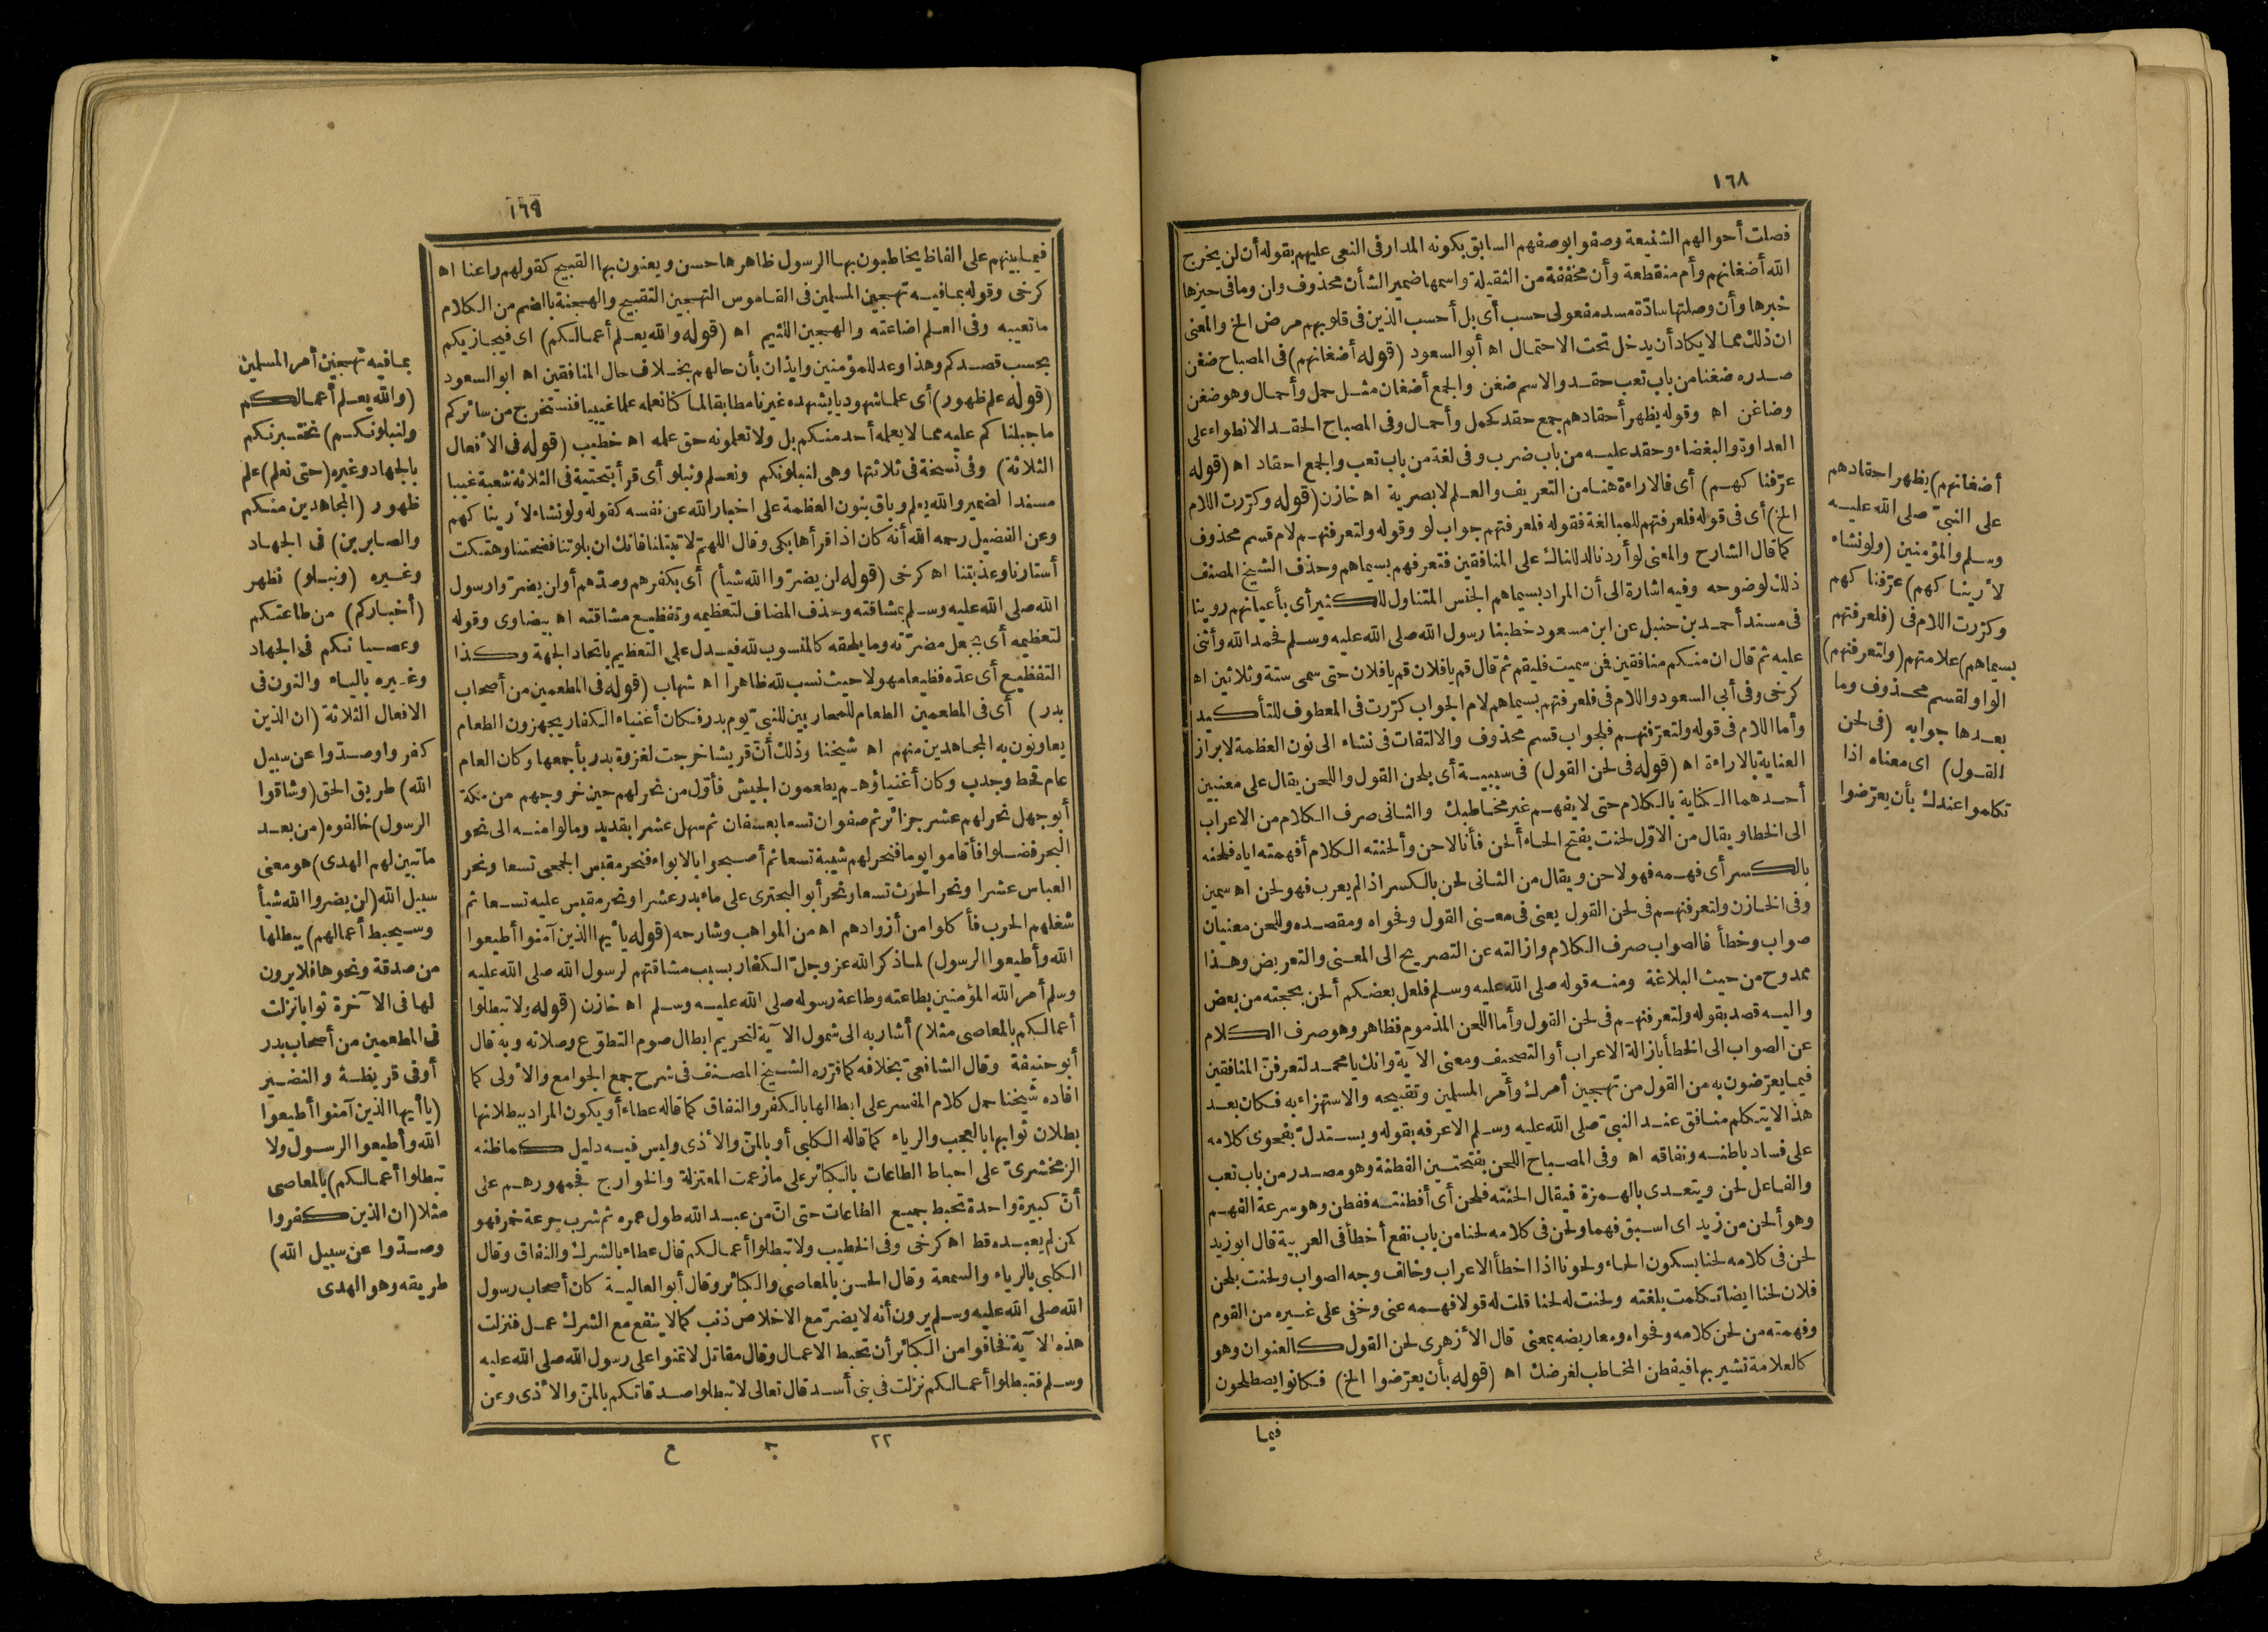 ١٦٨
فصلت أحوالهم الشنيعة وصفوا بوصفهم السابق بكونه المدار فى النعى عليهم بقوله أن لن يخرج
الله أضغانهم وأم منقطعة وأن مخففة من الثقيلة واسمها ضمير الشأن محذوف وان وما فى حيزها
خبرها وأن وصلتها سادّة مسد مفعولى حسب أى بل أحسب الذين فى قلوبهم مرض الخ والمعنى
ان ذلك مما لا يكاد أن يدخل تحت الاحتمال اه أبو السعود (قوله أضغانهم) فى المصباح ضغن
صدره ضغنا من باب تعب حقد والاسم ضغن والجمع أضغان مثل حمل وأحمال وهو ضغن
وضاغن اه وقوله يظهر أحقادهم جمع حقد كحمل وأحمال وفى المصباح الحقد الانطواء على
العداوة والبغضاء وحقد عليه من باب ضرب وفى لغة من باب تعب والجمع احقاد اه (قوله
عرّفنا كهم) أى فالاراءة هنا من التعريف والعلم لا بصرية اه خازن (قوله وكررت اللام
الخ) أى فى قوله فلعرفتهم للمبالغة فقوله فلعرفتهم جواب لو وقوله ولتعرفنهم لام قسم محذوف
كما قال الشارح والمعنى لو أردنا لدللناك على المنافقين فتعرفهم بسيماهم وحذف الشيخ المصنف
ذلك لوضوحه وفيه اشارة الى أن المراد بسيماهم الجنس المتناول للكثير أى بأعيانهم روينا
فى مسند أحمد بن حنبل عن ابن مسعود خطبنا رسول الله صلى الله عليه وسلم فحمد الله وأثنى
عليه ثم قال ان منكم منافقين فمن سميت فليقم ثم قال قم يا فلان قم يا فلان حتى سمى ستة وثلاثين اه
كرخى وفى أبى السعود واللام فى فلعرفتهم بسيماهم لام الجواب كررت فى المعطوف للتأكيد
وأما اللام فى قوله ولتعرّفنهم فلجواب قسم محذوف والالتفات فى نشاء الى نون العظمة لابراز
العناية بالاراءة اه (قوله فى لحن القول) فى سببية أى بلحن القول واللحن يقال على معنيين
أحدهما الكناية بالكلام حتى لا يفهم غير مخاطبك والثانى صرف الكلام من الاعراب
الى الخطا ويقال من الاوّل لحنت بفتح الحاء ألحن فأنا لاحن وألحنته الكلام أفهمته اياه فلحنه
بالكسر أى فهمه فهو لاحن ويقال من الثانى لحن بالكسر اذا لم يعرب فهو لحن اه سمين
وفى الخازن ولتعرفنهم فى لحن القول يعنى فى معنى القول وفحواه ومقصده وللحن معنيان
صواب وخطأ فالصواب صرف الكلام وازالته عن التصريح الى المعنى والتعريض وهذا
ممدوح من حيث البلاغة ومنه قوله صلى الله عليه وسلم فلعل بعضكم ألحن بحجته من بعض
واليه قصد بقوله ولتعرفنهم فى لحن القول وأما اللحن المذموم فظاهر وهو صرف الكلام
عن الصواب الى الخطأ بازالة الاعراب أو التصحيف ومعنى الآية وانك يا محمد لتعرفنّ المنافقين
فيما يعرّضون به من القول من تهجين أمرك وأمر المسلمين وتقبيحه والاستهزاء به فكان بعد
هذا لا يتكلم منافق عند النبىّ صلى الله عليه وسلم الا عرفه بقوله ويستدلّ بفحوى كلامه
على فساد باطنه ونفاقه اه وفى المصباح اللحن بفتحتين الفطنة وهو مصدر من باب تعب
والفاعل لحن ويتعدى بالهمزة فيقال الحنته فلحن أى أفطنته ففطن وهو سرعة الفهم
وهو ألحن من زيد اى اسبق فهما ولحن فى كلامه لحنا من باب نفع أخطأ فى العربية قال ابو زيد
لحن فى كلامه لحنا بسكون الحاء ولحونا اذا اخطأ الاعراب وخالف وجه الصواب ولحنت بلحن
فلان لحنا ايضا تكلمت بلغته ولحنت له لحنا قلت له قولا فهمه عنى وخفى على غيره من القوم
وفهمته من لحن كلامه وفحواه ومعاريضه بمعنى قال الأزهرى لحن القول كالعنوان وهو
كالعلامة تشير بها فيفطن المخاطب لغرضك اه (قوله بأن يعرّضوا الخ) فكانوا يصطلحون
فيما
أضغانهم) يظهر احقادهم
على النبىّ صلى الله عليه
وسلم والمؤمنين (ولو نشاء
لأريناكهم) عرّفنا كهم
وكررت اللام فى (فلعرفتهم
بسيماهم) علامتهم (ولتعرفنهم)
الواو لقسم محذوف وما
بعدها جوابه (فى لحن
القول) اى معناه اذا
تكلموا عندك بأن يعرّضوا
١٦٩
فيما بينهم على الفاظ يخاطبون بها الرسول ظاهرها حسن ويعنون بها القبيح كقولهم راعنا اه
كرخى وقوله بما فيه تهجين المسلمين فى القاموس التهجين التقبيح والهجنة بالضم من الكلام
ما تعيبه وفى العلم اضاعته والهجين اللئيم اه (قوله والله يعلم أعمالكم) اى فيجازيكم
بحسب قصدكم وهذا وعد للمؤمنين وايذان بأن حالهم بخلاف حال المنافقين اه ابو السعود
(قوله علم ظهور) أى علما شهوديا يشهده غيرنا مطابقا لما كنا نعلمه علما غيبيا فنستخرج من سائركم
ما جبلنا كم عليه مما لا يعلمه أحد منكم بل ولا تعلمونه حق علمه اه خطيب (قوله فى الأفعال
الثلاثة) وفى نسخة فى ثلاثتها وهى لنبلونكم ونعلم ونبلو أى قرأ بتحتية فى الثلاثة شعبة غيبا
مسندا لضمير والله يعلم وباق بنون العظمة على اخبار الله عن نفسه كقوله ولو نشاء لأريناكهم
وعن الفضيل رحمه الله أنه كان اذا قرأها بكى وقال اللهمّ لا تبتلنا فانك ان بلوتنا فضحتنا وهتكت
أستارنا وعذبتنا اه كرخى (قوله لن يضرّوا الله شيأ) أى بكفرهم وصدّهم أو لن يضرّوا رسول
الله صلى الله عليه وسلم بمشاقته وحذف المضاف لتعظيمه وتفظيع مشاقته اه بيضاوى وقوله
لتعظيمه أى بجعل مضرّته وما يلحقه كالمنسوب لله فيدل على التعظيم باتحاد الجهة وكذا
التفظيع أى عدّه فظيعا مهولا حيث نسب لله ظاهرا اه شهاب (قوله فى المطعمين من أصحاب
بدر) أى فى المطعمين الطعام للمحاربين للنبىّ يوم بدر فكان أغنياء الكفار يجهزون الطعام
يعاونون به المجاهدين منهم اه شيخنا وذلك أنّ قريشا خرجت لغزوة بدر بأجمعها وكان العام
عام قحط وجدب وكان أغنياؤهم يطعمون الجيش فأوّل من نحر لهم حين خروجهم من مكة
أبو جهل نحر لهم عشر جزائر ثم صفوان تسعا بعسفان ثم سهل عشرا بقديد ومالوا منه الى نحو
البحر فضلوا فأقاموا يوما فنحر لهم شيبة تسعا ثم أصبحوا بالابواء فنحر مقيس الجمعى تسعا ونحر
العباس عشرا ونحر الحرث تسعا ونحر أبو البحترى على ماء بدر عشرا ونحر مقيس عليه تسعا ثم
شغلهم الحرب فأكلوا من أزوادهم اه من المواهب وشارحه (قوله يا أيها الذين آمنوا أطيعوا
الله وأطيعوا الرسول) لما ذكر الله عز وجلّ الكفار بسبب مشاقتهم لرسول الله صلى الله عليه
وسلم أمر الله المؤمنين بطاعته وطاعة رسوله صلى الله عليه وسلم اه خازن (قوله ولا تبطلوا
أعمالكم بالمعاصى مثلا) أشار به الى شمول الآية لتحريم ابطال صوم التطوّع وصلاته وبه قال
أبو حنيفة وقال الشافعى بخلافه كما قرّره الشيخ المصنف فى شرح جمع الجوامع والأولى كما
افاده شيخنا حمل كلام المفسر على ابطالها بالكفر والنفاق كما قاله عطاء أو يكون المراد ببطلانها
بطلان ثوابها بالعجب والرياء كما قاله الكلبى أو بالمنّ والأذى وليس فيه دليل كما ظنه
الزمخشرىّ على احباط الطاعات بالكبائر على ما زعمت المعتزلة والخوارج فجمهورهم على
أنّ كبيرة واحدة تحبط جميع الطاعات حتى انّ من عبد الله طول عمره ثم شرب جرعة خمر فهو
كمن لم يعبده قط اه كرخى وفى الخطيب ولا تبطلوا أعمالكم قال عطاء بالشرك والنفاق وقال
الكلبى بالرياء والسمعة وقال الحسن بالمعاصى والكبائر وقال أبو العالية كان أصحاب رسول
الله صلى الله عليه وسلم يرون أنه لا يضرّ مع الاخلاص ذنب كما لا ينفع مع الشرك عمل فنزلت
هذه الآية فخافوا من الكبائر أن تحبط الاعمال وقال مقاتل لا تمنوا على رسول الله صلى الله عليه
وسلم فتبطلوا أعمالكم نزلت فى بنى أسد قال تعالى لا تبطلوا صدقاتكم بالمنّ والأذى وعن
٢٢ ع
بما فيه تهجين أمر المسلمين
(والله يعلم أعمالكم
ولنبلونكم) نختبرنكم
بالجهاد وغيره (حتى نعلم) علم
ظهور (المجاهدين منكم
والصابرين) فى الجهاد
وغيره (ونبلو) نظهر
(أخباركم) من طاعتكم
وعصيانكم فى الجهاد
وغيره بالياء والنون فى
الافعال الثلاثة (ان الذين
كفروا وصدّوا عن سبيل
الله) طريق الحق (وشاقوا
الرسول) خالفوه (من بعد
ما تبين لهم الهدى) هو معنى
سبيل الله (لن يضروا الله شيأ
وسيحبط أعمالهم) يبطلها
من صدقة ونحوها فلا يرون
لها فى الآخرة ثوابا نزلت
فى المطعمين من أصحاب بدر
أو فى قريظة والنضير
(يا أيها الذين آمنوا أطيعوا
الله وأطيعوا الرسول ولا
تبطلوا أعمالكم) بالمعاصى
مثلا (ان الذين كفروا
وصدّوا عن سبيل الله)
طريقه وهو الهدى